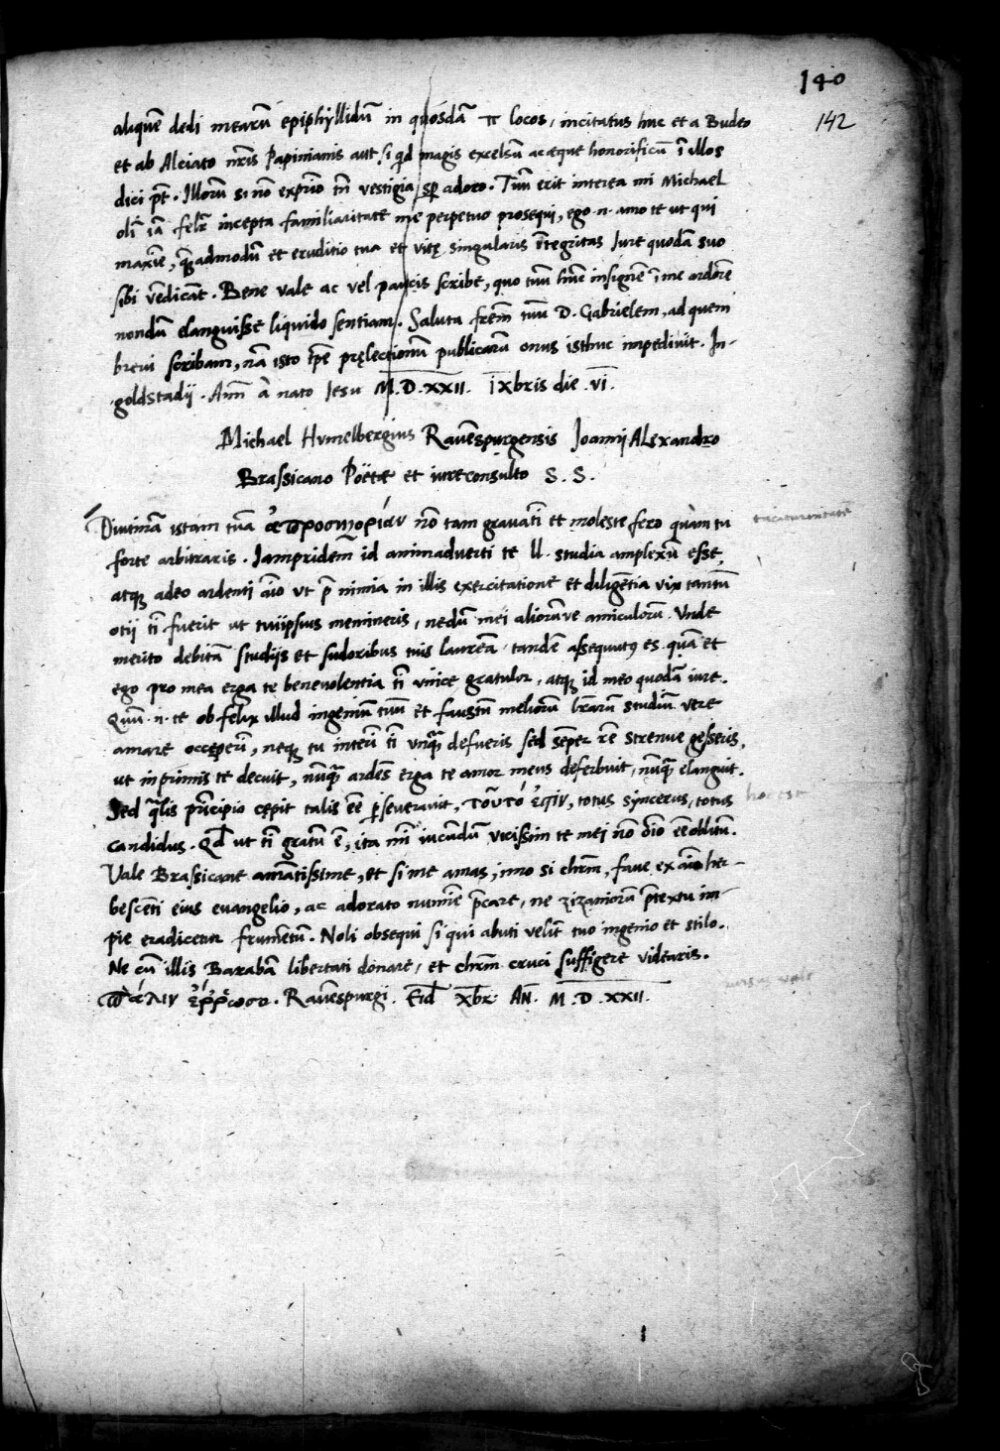 140
142
aliquẽ dedi mearũ epiphyllidũ in quosdã π locos, incitatus huc et a Budeo
et ab Alciato nr̃is Papinianis aut si qd magis excelsũ ac æque honorificũ ĩ illos
dici põt. Illorũ si nõ exprĩo tñ vestigia sp adoro. Tuũ erit interea mi Michael
olĩ iã felr̃ incepta familiaritate me perpetuo prosequi, ego .n. amo te ut qui
maxĩe, quẽadmodũ et eruditio tua et vitę singularis ĩtegritas Jure quodã suo
sibi vẽdicãt. Bene vale ac vel paucis scribe, quo tuũ hũc insignẽ ĩ me ardorẽ
nondũ elanguisse liquido sentiam. Saluta frẽm tuũ D. Gabrielem, ad quem
brevi scribam, nã isto tp̃e pręlectionũ publicarũ onus isthuc impedivit. In-
goldstadij. Ann̄ a nato Jesu M.D.XXII. IXbris die .VI.
Michael Humelbergius Ravẽspurgensis Joanni Alexandro
Brassicano Poëtæ et iureconsulto S. S.
Diutinã istam tuã ἀπροσηγορίαν nõ tam gravãti et moleste fero quàm tu
forte arbitraris. Jampridem id animadverti te ll. studia amplexũ esse,
atq; adeo ardenti aĩo ut p̃ nimia in illis exercitatione et diligẽtia vix tantũ
otij tĩ fuerit ut tuiipsius memineris, nedũ mei aliorũve amiculorũ. Unde
merito debitã studijs et sudoribus tuis laureã tandẽ assequutus es. quã et
ego pro mea erga te benevolentia tĩ unice gratulor, atq; id meo quodã iure.
Quũ .n. te ob felix illud ingeniũ tuũ et faustũ meliorũ lr̃arũ studiũ vere
amare occeperĩ, neq; tu interĩ tĩ unq̃ defueris sed sẽper rẽ strenue gesseris,
ut inprimis te decuit, nũq̃ ardẽs erga te amor meus deferbuit, nũq̃ elanguit.
Sed q̃lis prĩcipio cępit talis eẽ p̱severavit, τοῦτό ἐστιν, totus syncerus, totus
candidus. Qd ut tĩ gratũ ẽ, ita mĩ iucũdũ vicissim te mei nõ õio eẽ oblitũ.
Vale Brassicane amãtissime, et si me amas, imo si chrm̃, fave ex aĩo her-
bescẽti eius evangelio, ac adorato numĩe p̃care, ne zizaniorũ p̃textu im-
pie eradicetur frumẽtũ. Noli obsequi si qui abuti velĩt tuo ingenio et stilo.
Ne cũ illis Barabã libertati donare, et chrm̃ cruci suffigere videaris.
πάλιν ἔρρωσο. Ravẽspurgi. Eid Xbr. AN. M.D.XXII.
taciturnitatẽ
hoc est
rursus vale